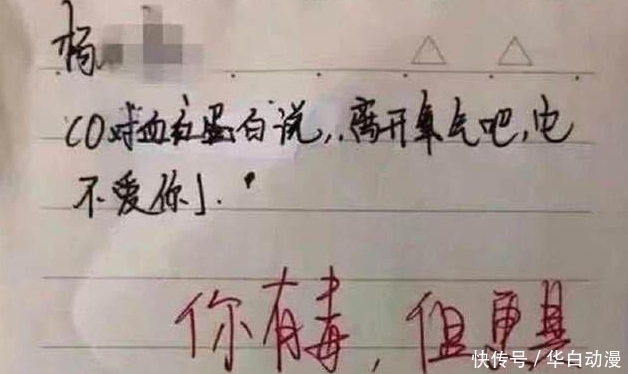 杨
CO对血红蛋白说,离开氧气吧,它
不爱你」.
你有毒,但更甚
快传号/华白动漫